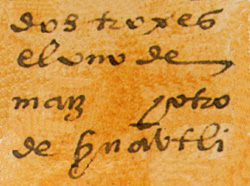 dos troxes
el uno de
maiz y otro
de huavtli